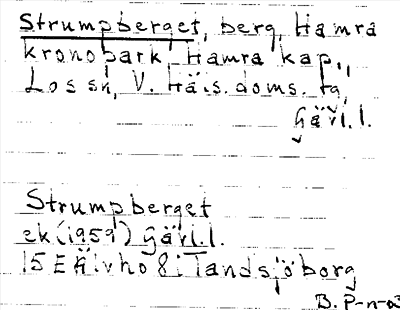 Strumpberget, berg, Hamra
kronopark, Hamra kap.,
Los sn, V. Häls. doms. ta,
Gävl. l.
Strumpberget
ek (1959) Gävl. l.
15 E Älvho 8 i Tandsjöborg
B. P-n-a